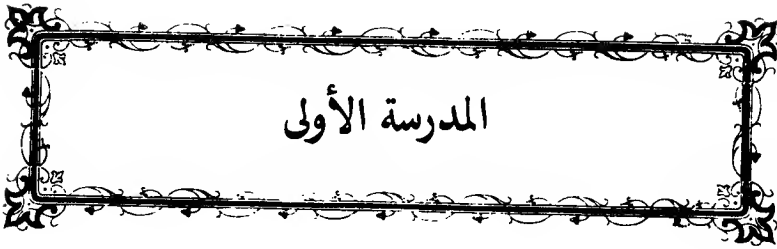 المدرسة الأولى